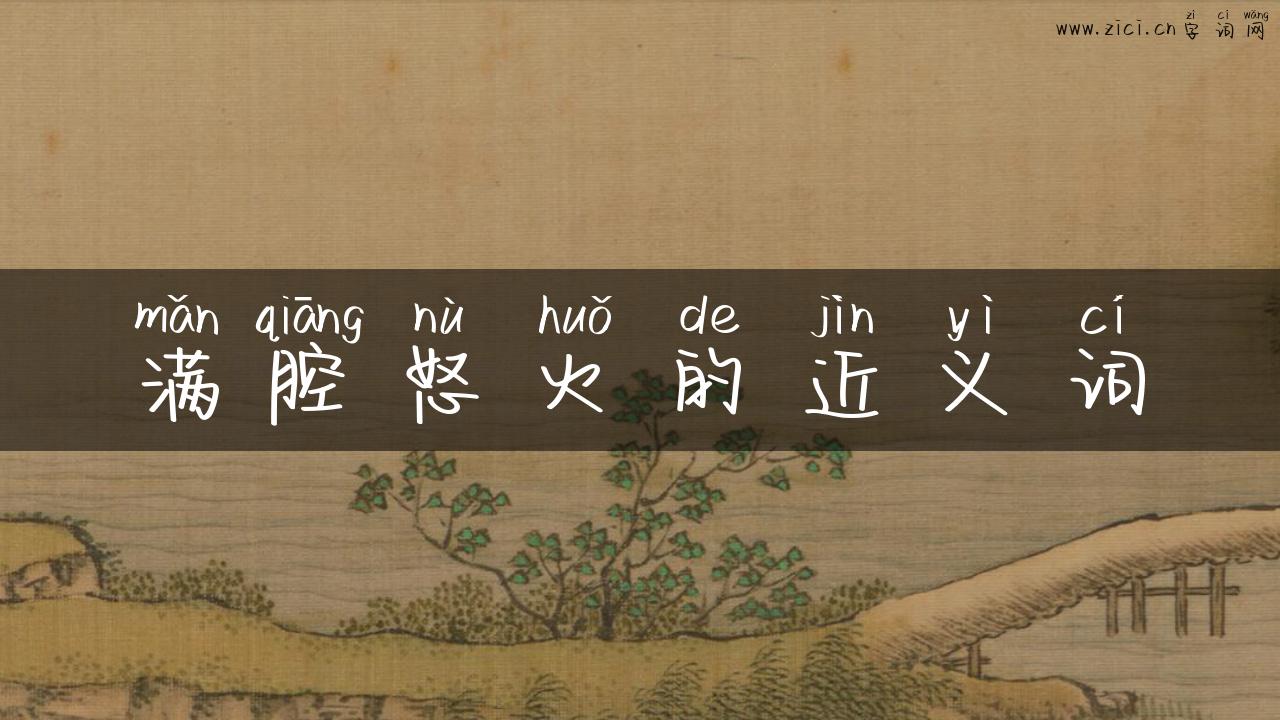 zì cí wǎng
www.zici.cn 字词网
mǎn qiāng nù huǒ de jìn yì cí
满腔怒火的近义词